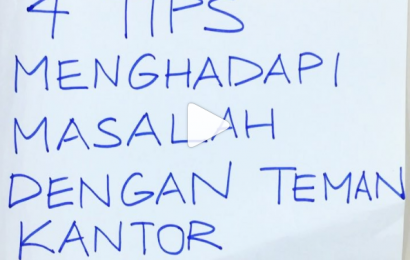 4 TIPS
MENGHADAPI
MASALAH
DENGAN TEMAN
KANTOR